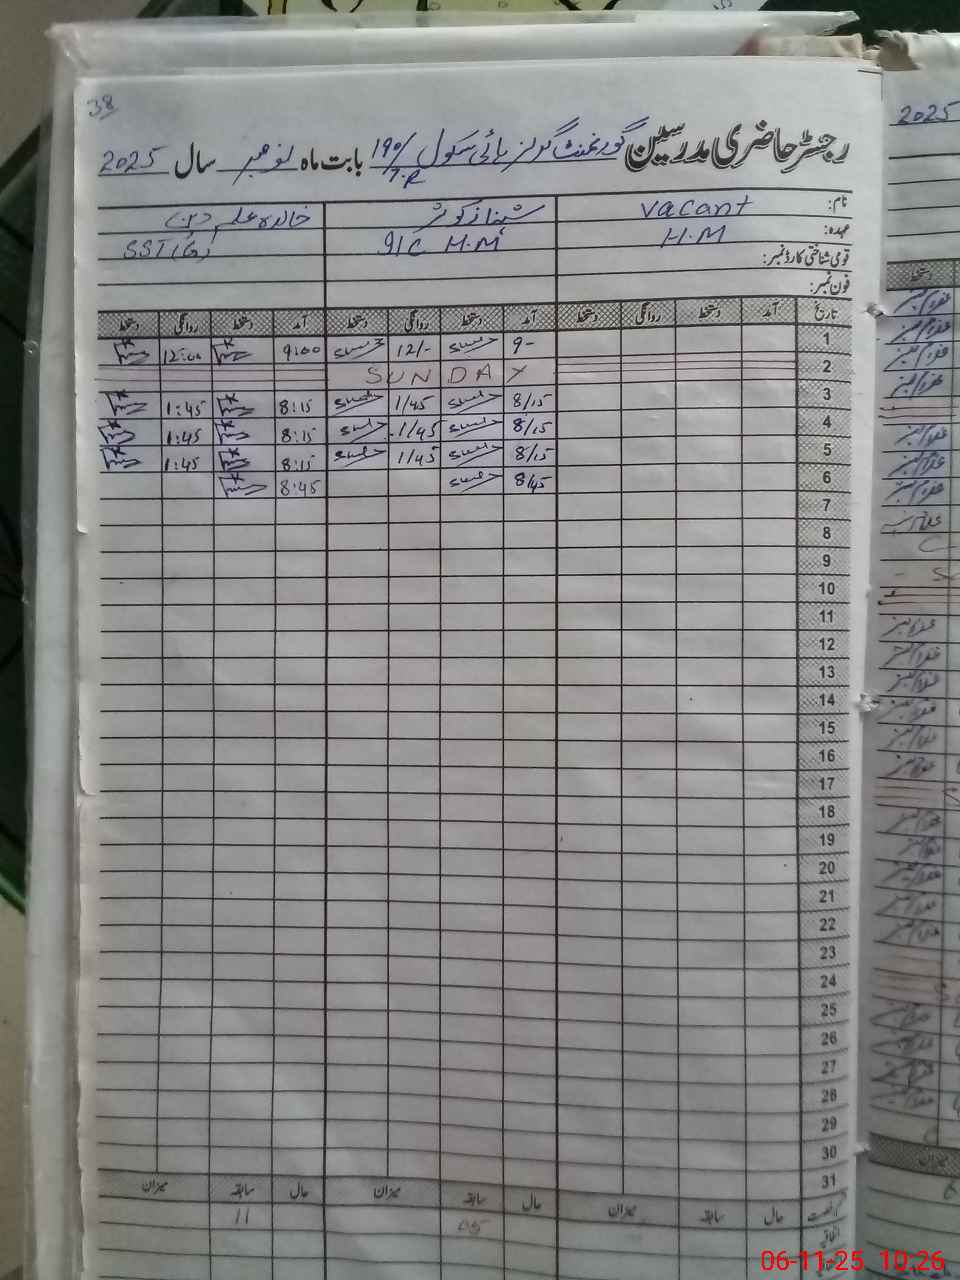 38
رجسٹر حاضری مدرسین گورنمنٹ گرلز ہائی سکول 190/7.R بابت ماہ نومبر سال 2025
نام: vacant شہناز کوثر خالدہ علم دین
عہدہ: H.M I/C H.M SST(G)
قومی شناختی کارڈ نمبر:
فون نمبر:
تاریخ آمد دستخط روانگی دستخط آمد دستخط روانگی دستخط آمد دستخط روانگی دستخط
1 9- 12/- 9:00 12:00
2 SUNDAY
3 8/15 1/45 8:15 1:45
4 8/15 1/45 8:15 1:45
5 8/15 1/45 8:15 1:45
6 8/45 8:45
7
8
9
10
11
12
13
14
15
16
17
18
19
20
21
22
23
24
25
26
27
28
29
30
31
رخصت حال سابقہ میزان حال سابقہ میزان حال سابقہ میزان
اتفاقیہ 05 11
2025
دستخط
میزان
06-11-25 10:26